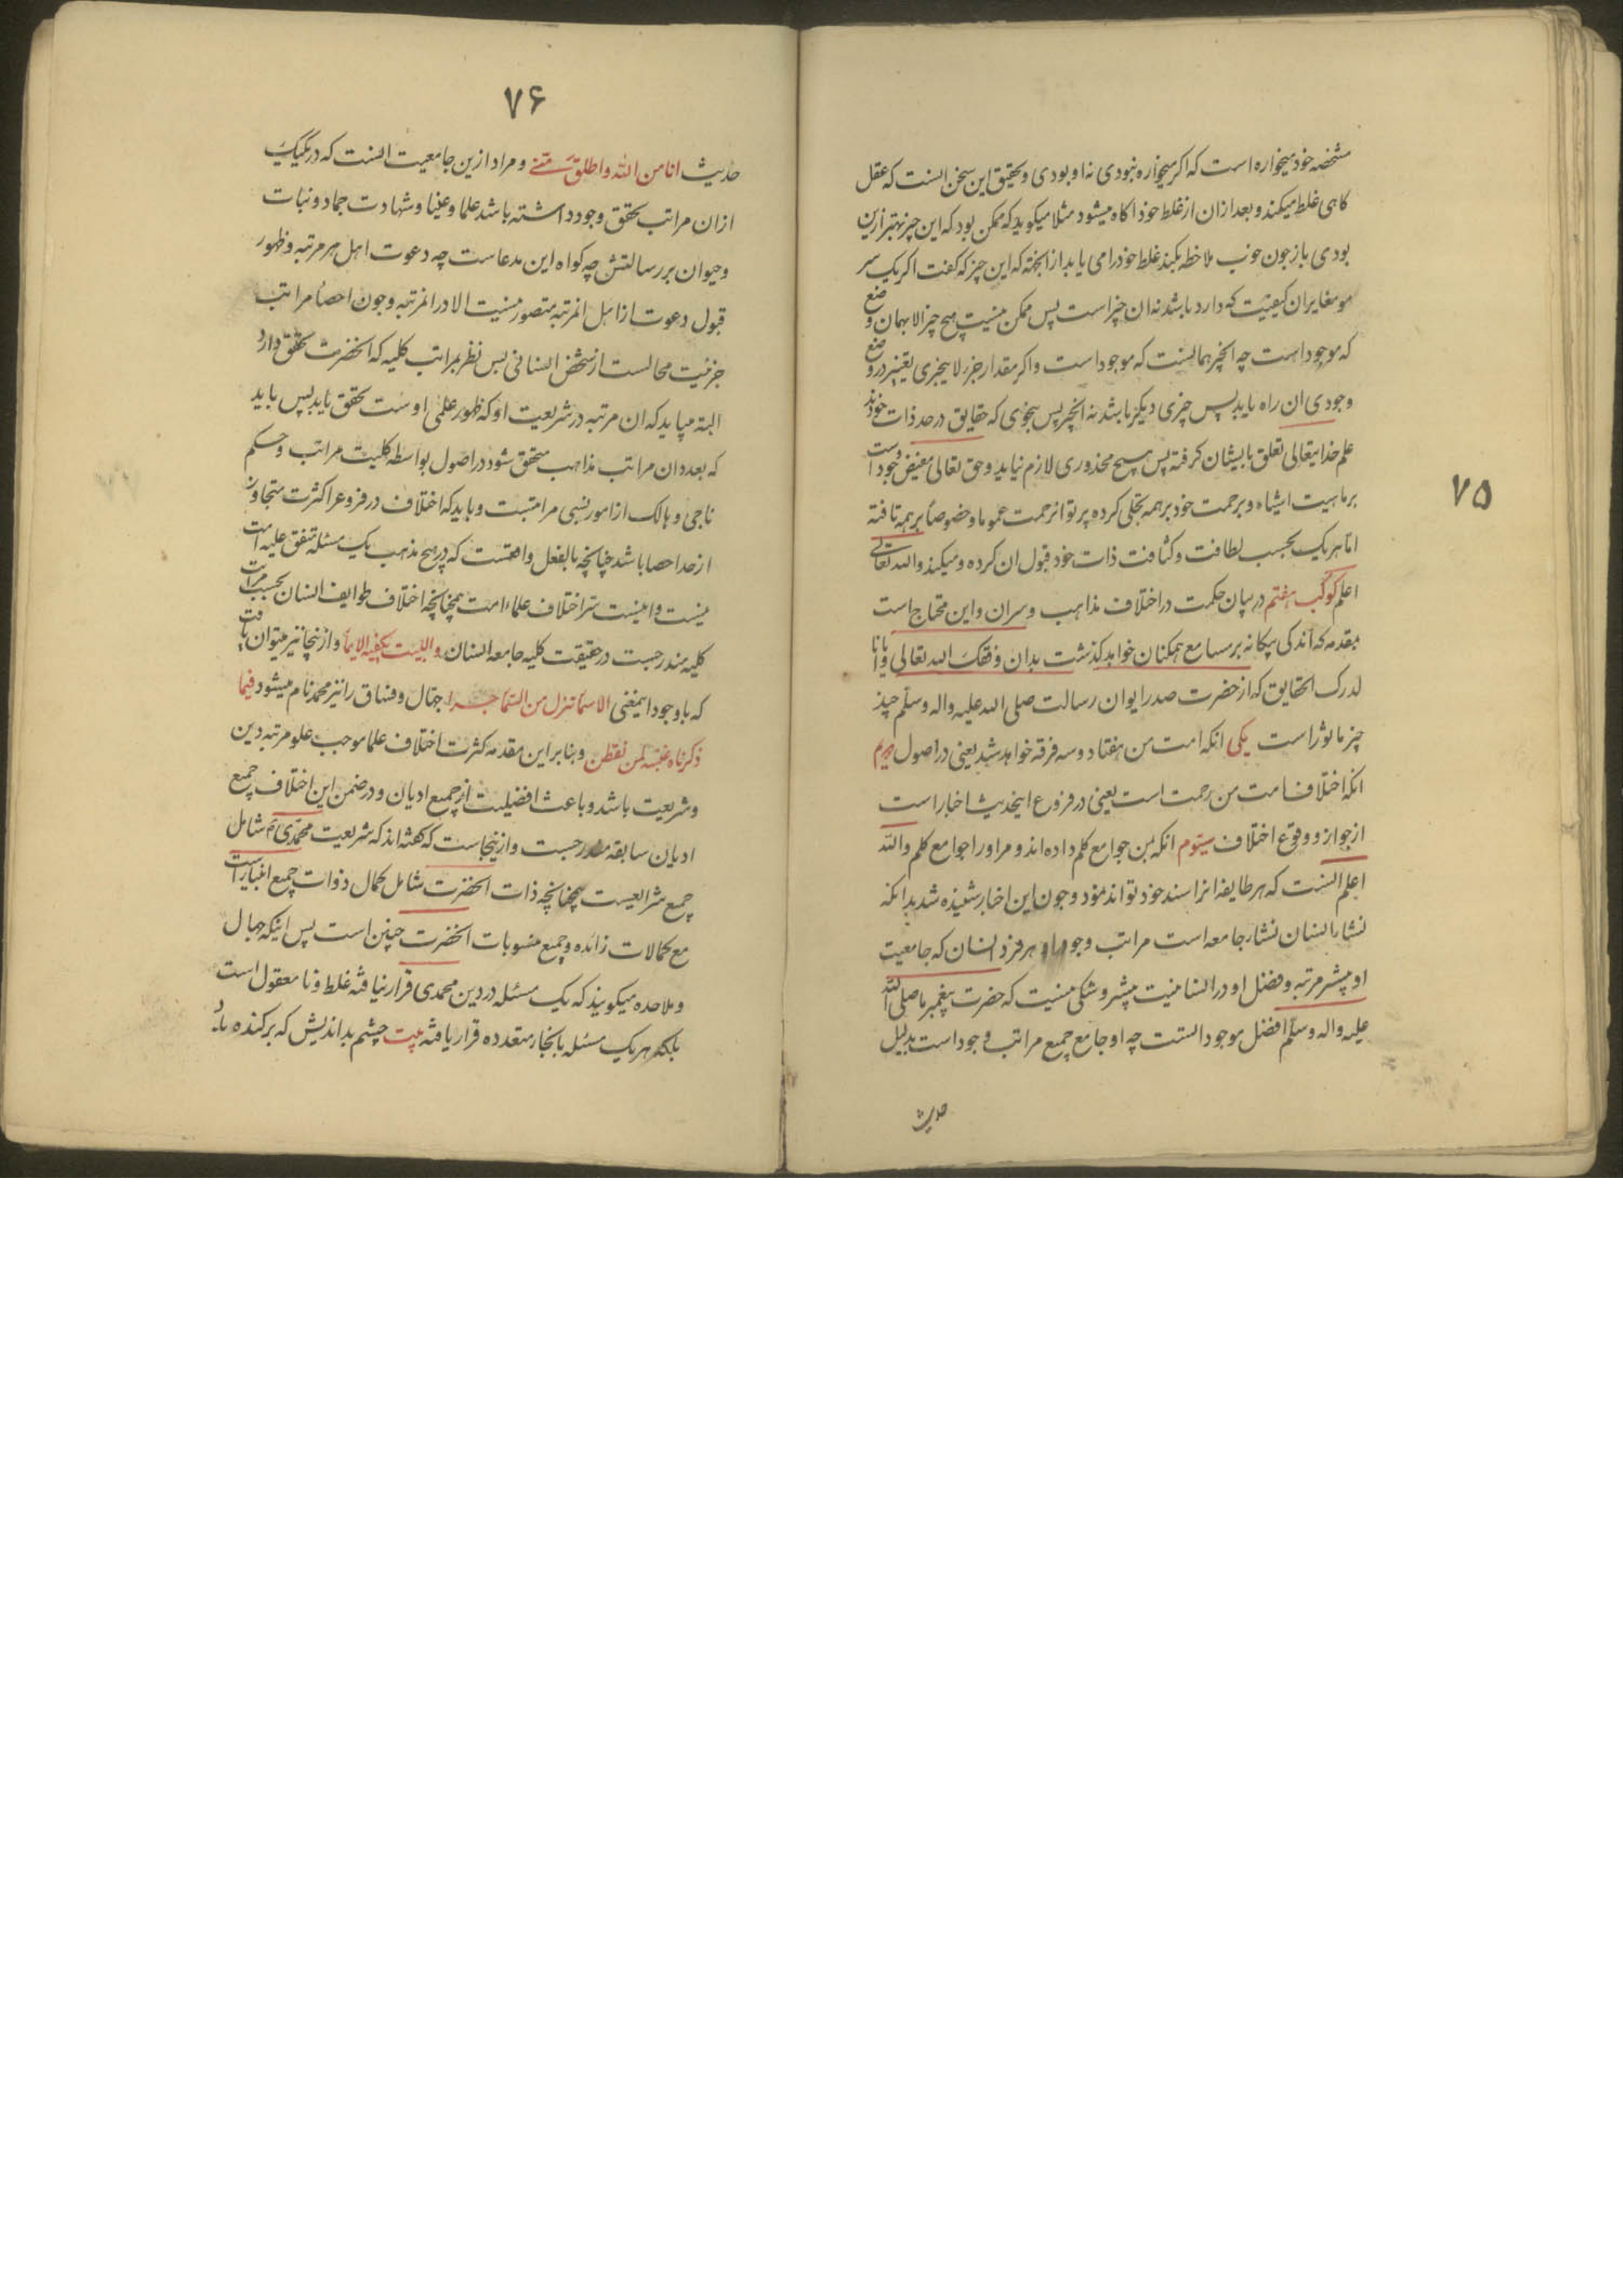 ۷۵
مشخصه خود میخواره است که اگر میخواره نبودی نه او بودی و تحقیق این سخن آنست که عقل
کاهی غلط میکند و بعد ازان از غلط خود اکاه میشود مثلا میکوید که ممکن بود که این چیز بهتر ازین
بودی باز چون خوب ملاحظه بکند غلط خود را می یابد از انجهته که این چیز که کفت اکر یک سر
مو مغایر ان کیفیت که دارد باشد نه ان چیز است پس ممکن نیست هیچ چیز الا بهمان وضع
که موجود است چه انچیز همانست که موجود است و اکر مقدار جزء لایتجزی تغییر در وضع
وجودی ان راه یابد پس چیزی دیکر باشد نه انچیز پس بنحوی که حقایق در حد ذات خودند
علم خدایتعالی تعلق بایشان کرفته پس هیچ محذوری لازم نیاید و حق تعالی مفیض وجود است
بر ماهیت اشیاء و برحمت خود بر همه تجلی کرده پرتو از رحمت عموما و خصوصاً بر همه تافته
اما هر یک بحسب لطافت و کثافت ذات خود قبول ان کرده و میکند والله تعالی
اعلم کوکب هفتم در بیان حکمت در اختلاف مذاهب و سران و این محتاج است
بمقدمه که اندکی بیکانه بر مسامع همکنان خواهد کذشت بدان وفقک الله تعالی وایانا
لدرک الحقایق که از حضرت صدر ایوان رسالت صلی الله علیه واله وسلم چند
چیز ماثور است یکی انکه امت من هفتاد و سه فرقه خواهد شد یعنی در اصول دویم
انکه اختلاف امت من رحمت است یعنی در فروع اینحدیث اخبار است
از جواز و وقوع اختلاف سیّوم انکه بمن جوامع کلم داده اند و مراد از جوامع کلم والله
اعلم آنست که هر طایفه انرا سند خود تواند نمود و چون این اخبار شنیده شد بدانکه
نشاء انسان نشاء جامعه است مراتب وجود را و هر فرد انسان که جامعیت
او بیشتر مرتبه و فضل او در انسانیت بیشتر و شکی نیست که حضرت پیغمبر ما صلی الله
علیه واله وسلم افضل موجوداتست چه او جامع جمیع مراتب وجود است بدلیل
حدیث
۷۶
حدیث انا من الله واطلق منی و مراد ازین جامعیت آنست که در هر یک
ازان مراتب تحقق وجود داشته باشد علما وعینا و شهادت جماد و نبات
و حیوان بر رسالتش چه کواه این مدعاست چه دعوت اهل هر مرتبه و ظهور
قبول دعوت از اهل انمرتبه متصور نیست الا در انمرتبه و چون احصاء مراتب
جزئیت محالست از شخص انسانی پس نظر بمراتب کلیه که انحضرت تحقق دارد
البته میباید که ان مرتبه در شریعت او که ظهور علمی اوست تحقق یابد پس باید
که بعدد ان مراتب مذاهب متحقق شود در اصول بواسطه کلیت مراتب و حکم
ناجی و هالک از امور نسبی مراتبست و باید که اختلاف در فروع از کثرت متجاوز
از حد احصا باشد چنانچه بالفعل واقعست که در هیچ مذهب یک مسئله متفق علیه امت
نیست و اینست سر اختلاف علماء امت همچنانچه اختلاف طوایف انسان بحسب مراتب
کلیه مندرجست در حقیقت کلیه جامعه انسان واللبیب یکفیه الایماء و از اینجا نیز میتوان یافت
که با وجود اینمعنی الاسماء تنزل من السماء چرا جهال و فساق را نیز محمد نام میشود فیما
ذکرناه غنیة لمن تفطن و بنابر این مقدمه کثرت اختلاف علما موجب علو مرتبه دین
و شریعت باشد و باعث افضلیت از جمیع ادیان و در ضمن این اختلاف جمیع
ادیان سابقه مندرجست و از ینجاست که کفته اند که شریعت محمدی م شامل
جمیع شرایعست همچنانچه ذات انحضرت شامل کمال ذوات جمیع انبیا است
مع کمالات زائده و جمیع منسوبات انحضرت چنین است پس اینکه جهال
و ملاحده میکویند که یک مسئله در دین محمدی قرار نیافته غلط و نامعقول است
بلکه هر یک مسئله بانحاء متعدده قرار یافته بیت چشم بداندیش که برکنده باد